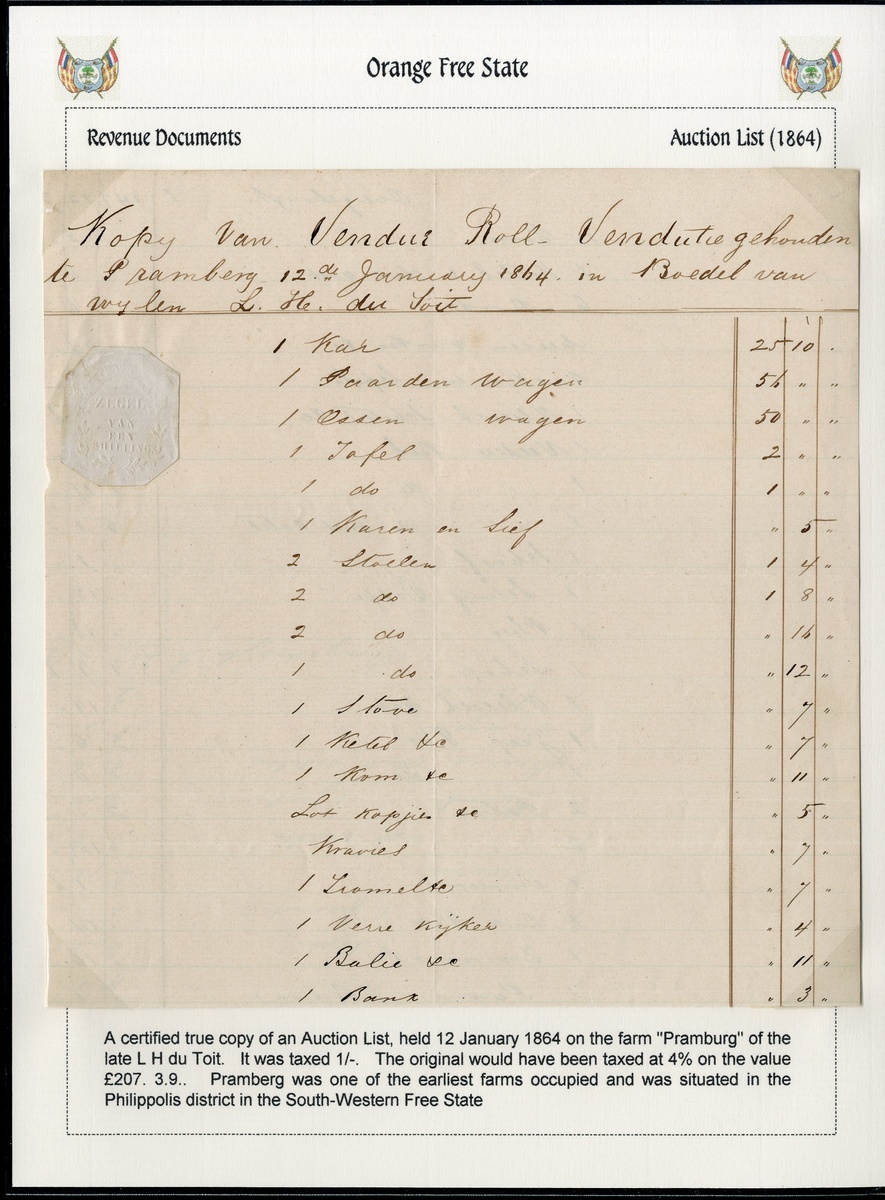 Orange Free State
Revenue Documents
Auction List (1864)
Kopy van Vendue Roll - Vendutie gehouden
te Pramberg 12.de January 1864. in Boedel van
wylen L. H. du Toit
ZEGEL
VAN
EEN
SHILLING
1 Kar 25 10 .
1 Paarden wagen 56 " "
1 Ossen wagen 50 " "
1 Tafel 2 " "
1 do 1 " "
1 Karen en Sief " 5 "
2 Stoelen 1 4 "
2 do 1 8 "
2 do " 16 "
1 do " 12 "
1 Stove " 7 "
1 Ketel &c " 7 "
1 Kom &c " 11 "
Lot kopjies &c " 5 "
" 7 "
1 Tromel &c " 7 "
1 Verre kijker " 4 "
1 Balie &c " 11 "
1 Bank " 3 "
A certified true copy of an Auction List, held 12 January 1864 on the farm "Pramburg" of the
late L H du Toit. It was taxed 1/-. The original would have been taxed at 4% on the value
£207. 3.9.. Pramberg was one of the earliest farms occupied and was situated in the
Philippolis district in the South-Western Free State